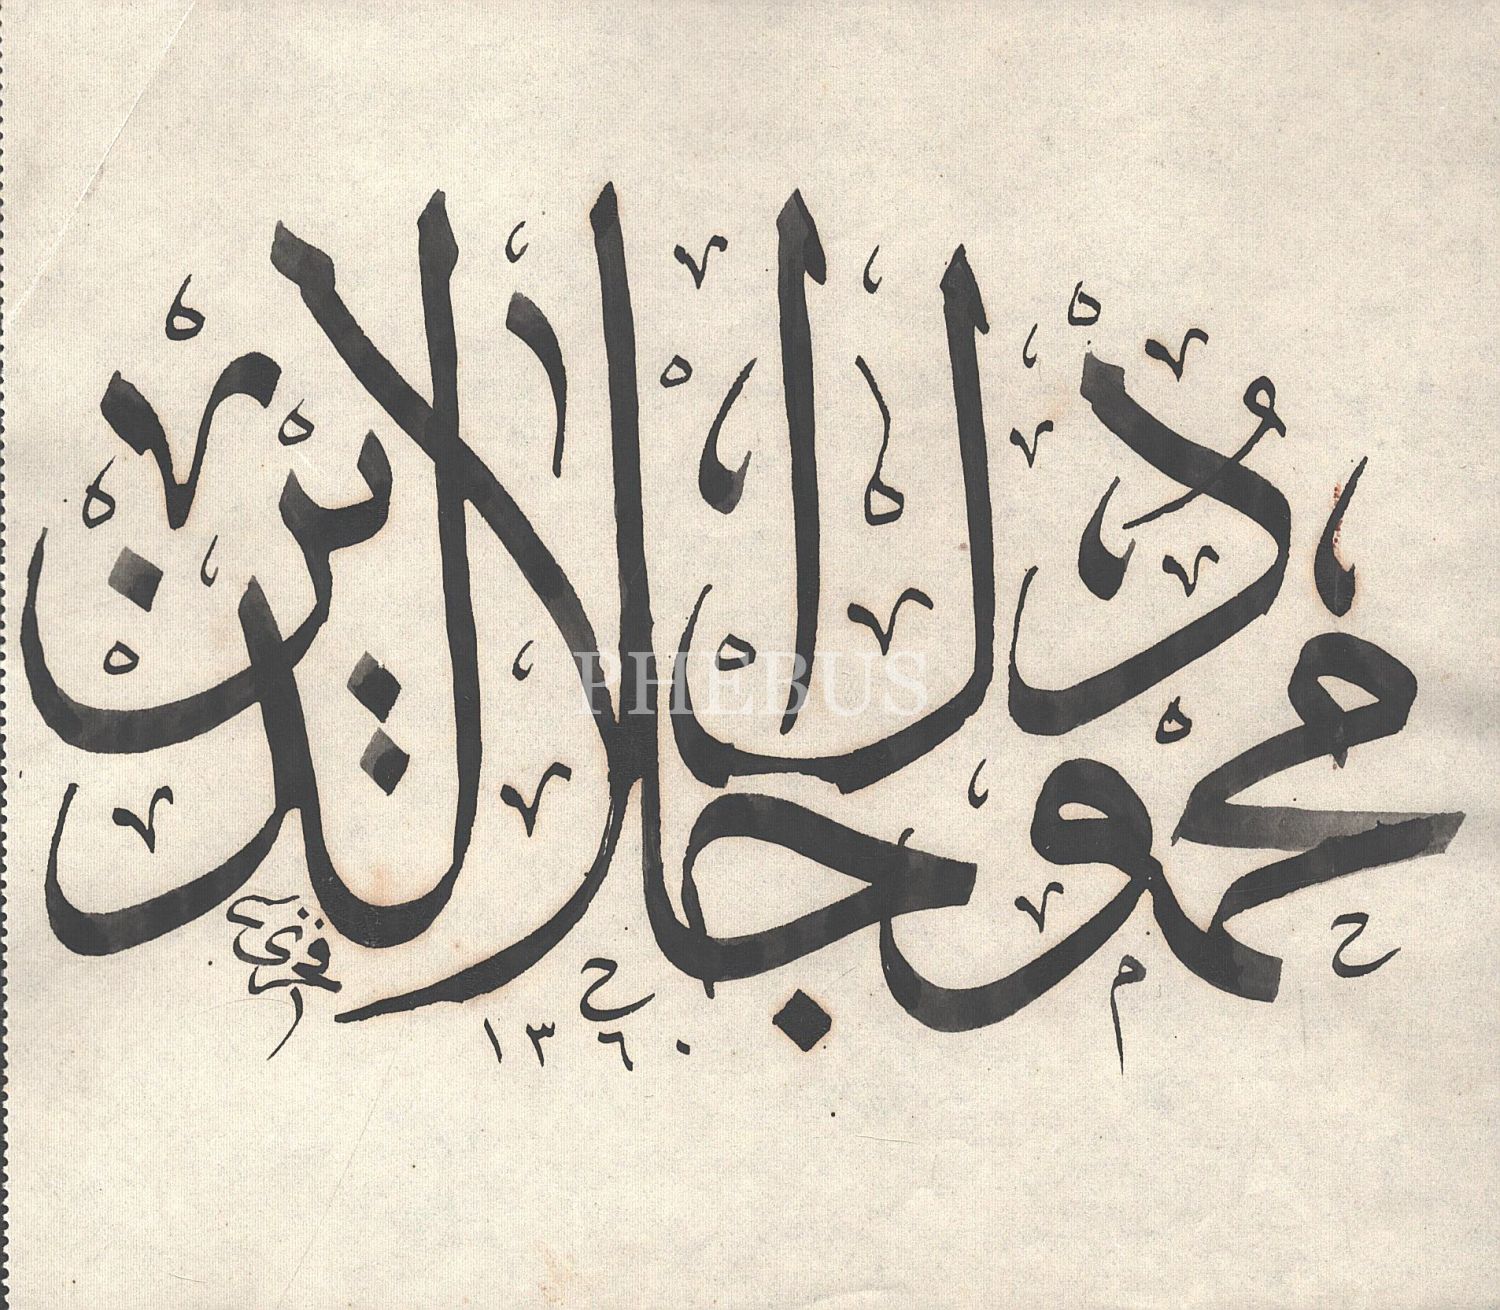 محمود جلال الدين
PHEBUS
١٣٦٠